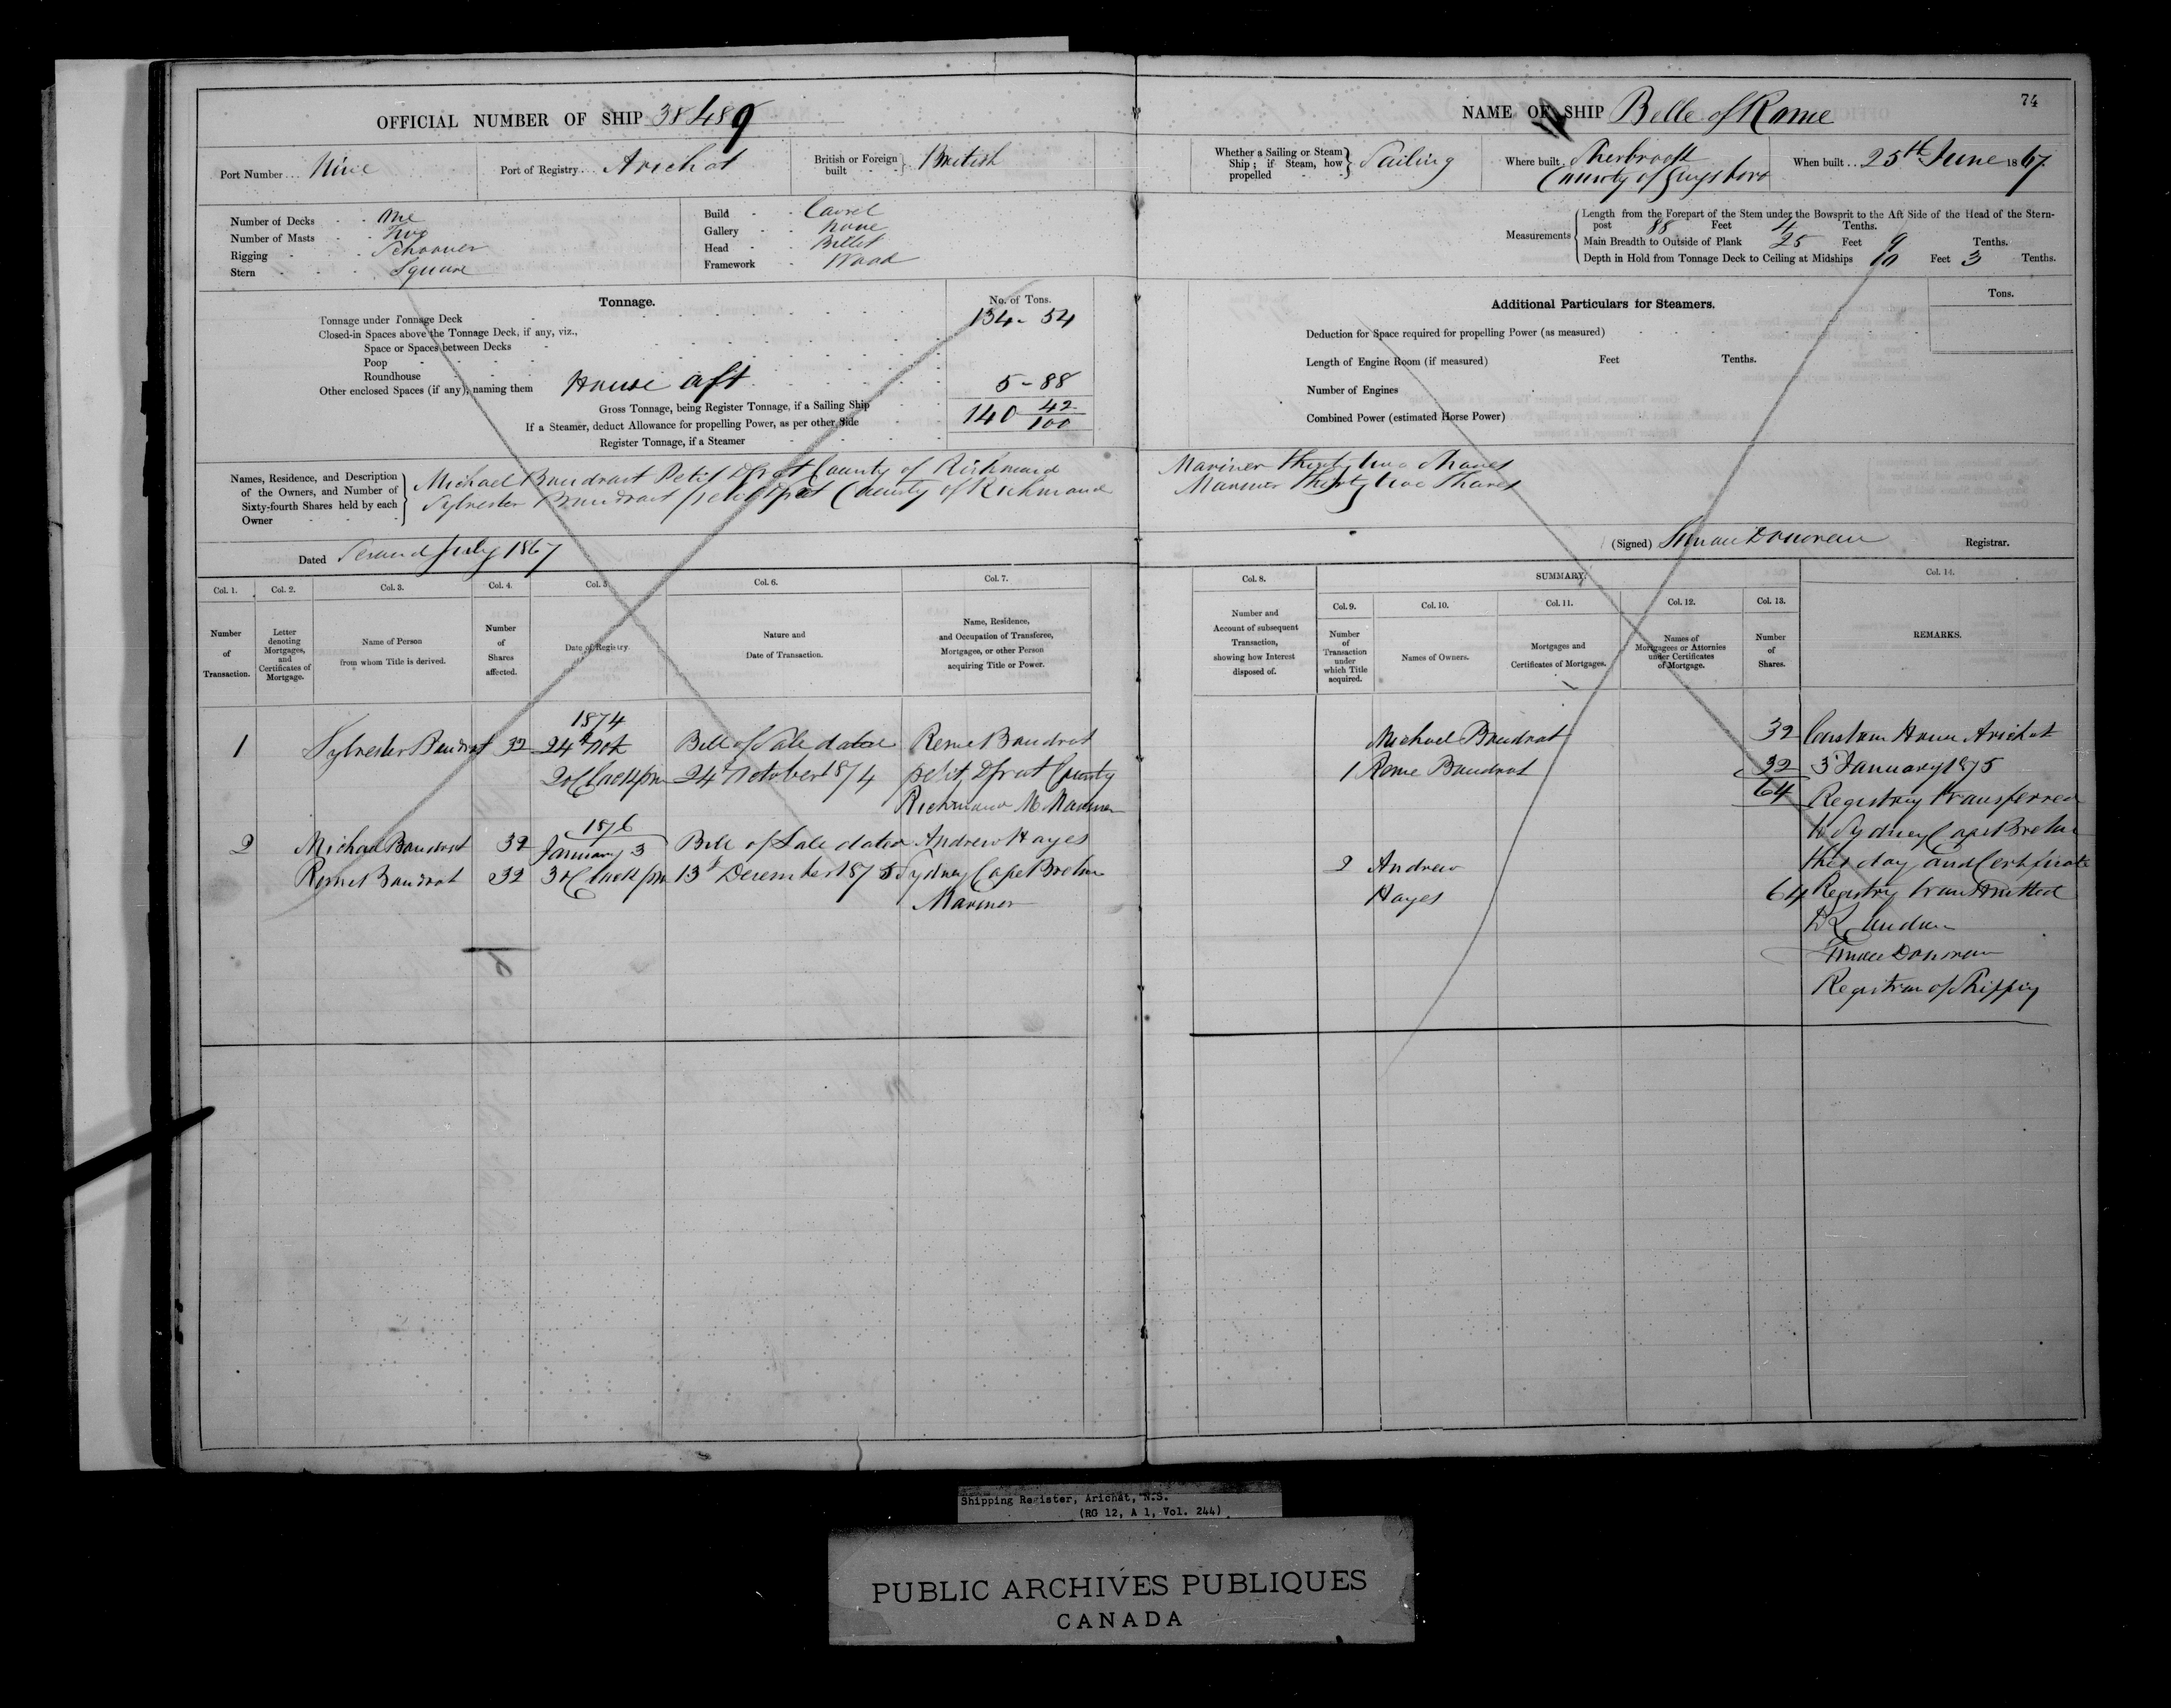 74
OFFICIAL NUMBER OF SHIP 38489
NAME OF SHIP Belle of Rome
Port Number Nine
Port of Registry Arichat
British or Foreign built British
Whether a Sailing or Steam Ship; if Steam, how propelled Sailing
Where built Sherbrook County of Guysboro
When built 25th June 1867
Number of Decks One
Number of Masts Two
Rigging Schooner
Stern Square
Build Carvel
Gallery None
Head Billet
Framework Wood
Measurements
Length from the Forepart of the Stem under the Bowsprit to the Aft Side of the Head of the Stern-
post 88 Feet 4 Tenths.
Main Breadth to Outside of Plank 25 Feet 9 Tenths.
Depth in Hold from Tonnage Deck to Ceiling at Midships 10 Feet 3 Tenths.
Tonnage.
No. of Tons.
Tonnage under Tonnage Deck 134-54
Closed-in Spaces above the Tonnage Deck, if any, viz.,
Space or Spaces between Decks
Poop
Roundhouse
Other enclosed Spaces (if any), naming them House aft 5-88
Gross Tonnage, being Register Tonnage, if a Sailing Ship 140 42/100
If a Steamer, deduct Allowance for propelling Power, as per other Side
Register Tonnage, if a Steamer
Additional Particulars for Steamers.
Tons.
Deduction for Space required for propelling Power (as measured)
Length of Engine Room (if measured) Feet Tenths.
Number of Engines
Combined Power (estimated Horse Power)
Names, Residence, and Description
of the Owners, and Number of
Sixty-fourth Shares held by each
Owner
Michael Boudrot Petit Dgrat County of Richmond Mariner thirty two shares
Sylvester Boudrot petit Dgrat County of Richmond Mariner thirty two Shares
Dated Second July 1867
(Signed) Donovan Registrar.
Col. 1.
Col. 2.
Col. 3.
Col. 4.
Col. 5.
Col. 6.
Col. 7.
Col. 8.
SUMMARY.
Col. 9.
Col. 10.
Col. 11.
Col. 12.
Col. 13.
Col. 14.
Number of Transaction.
Letter denoting Mortgages, and Certificates of Mortgage.
Name of Person from whom Title is derived.
Number of Shares affected.
Date of Registry.
Nature and Date of Transaction.
Name, Residence, and Occupation of Transferee, Mortgagee, or other Person acquiring Title or Power.
Number and Account of subsequent Transaction, showing how Interest disposed of.
Number of Transaction under which Title acquired.
Names of Owners.
Mortgages and Certificates of Mortgages.
Names of Mortgagees or Attornies under Certificates of Mortgage.
Number of Shares.
REMARKS.
1874
1 Sylvester Boudrot 32 24th Oct Bill of Sale dated Reme Boudrot
2 oClock pm 24th October 1874 petit Dgrat County
Richmond Mariner
1876
2 Michael Boudrot 32 January 3 Bill of Sale dated Andrew Hayes
Reme Boudrot 32 3 oClock pm 13th December 1875 Sydney Cape Breton
Mariner
Michael Boudrot 32
1 Reme Boudrot 32
64
2 Andrew
Hayes 64
Custom House Arichat
3rd January 1875
Registry transferred
to Sydney Cape Breton
this day and Certificate
Registry transmitted
to London
Donovan
Registrar of Shipping
Shipping Register, Arichat, N.S.
(RG 12, A 1, Vol. 244)
PUBLIC ARCHIVES PUBLIQUES
CANADA